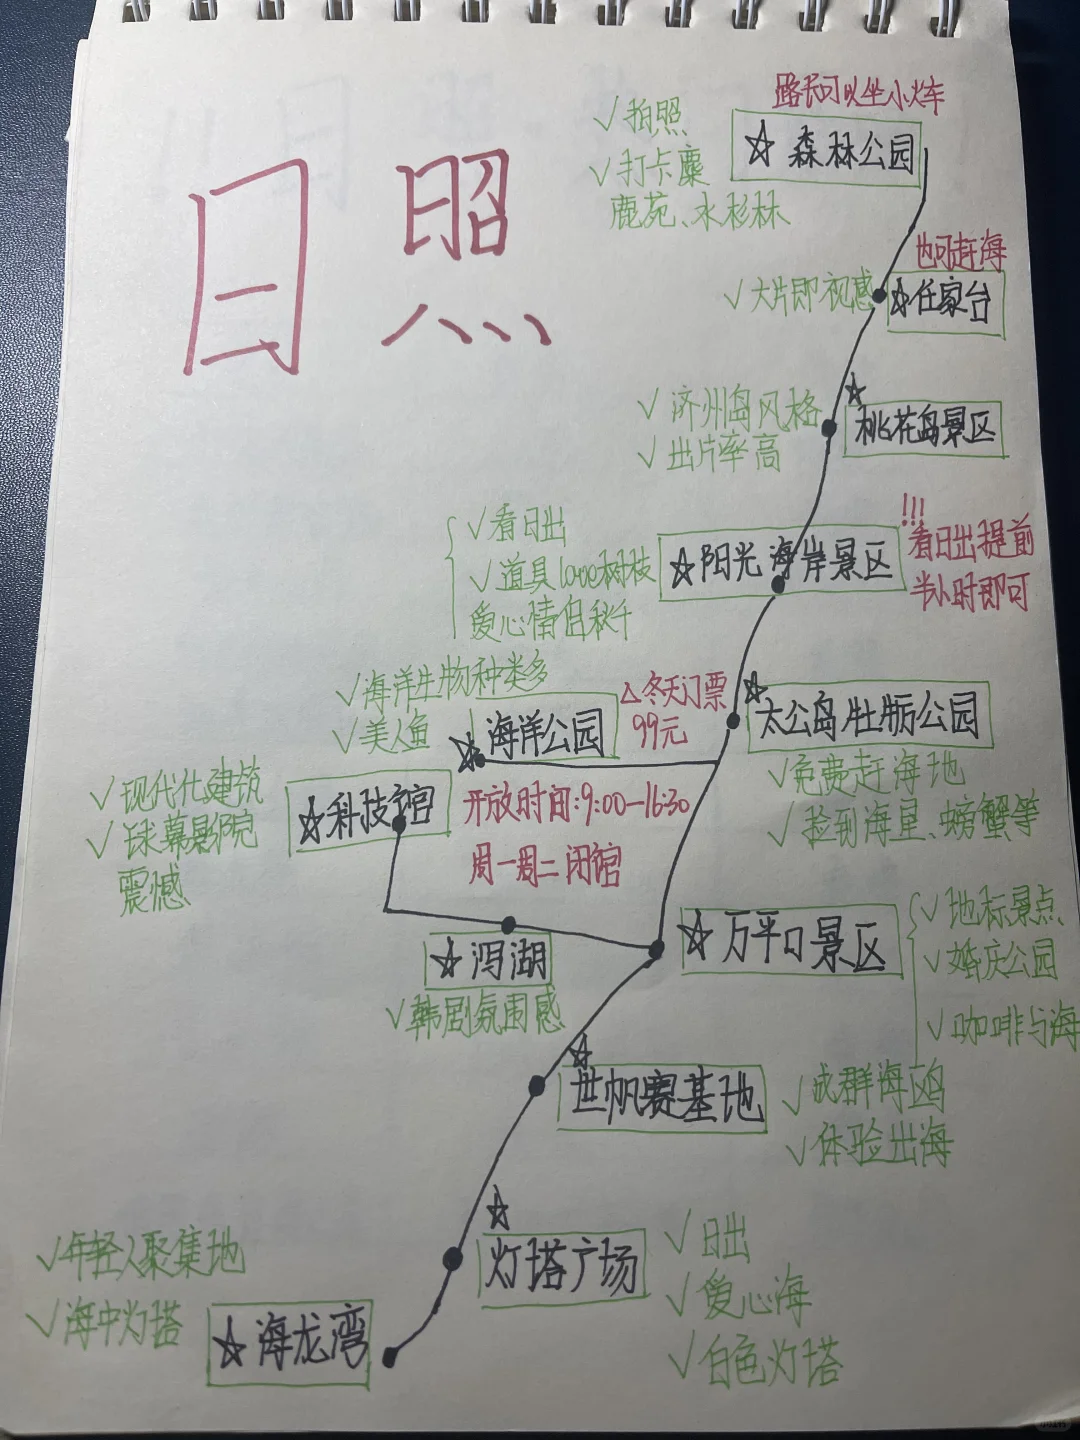 日照
路长可以坐小火车
☆森林公园
✓拍照
✓打卡麋
鹿苑、水杉林
也可赶海
☆任家台
✓大片即视感
☆桃花岛景区
✓济州岛风格
✓出片率高
☆阳光海岸景区
!!!
看日出提前
半小时即可
✓看日出
✓道具loooo树枝
爱心情侣秋千
☆太公岛牡蛎公园
✓免费赶海地
✓捡到海星、螃蟹等
✓海洋生物种类多
✓美人鱼
☆海洋公园
△冬天门票
99元
☆科技馆
✓现代化建筑
✓球幕影院
震撼
开放时间:9:00—16:30
周一周二闭馆
☆万平口景区
✓地标景点
✓婚庆公园
✓咖啡与海
☆泻湖
✓韩剧氛围感
☆世帆赛基地
✓成群海鸥
✓体验出海
☆灯塔广场
✓日出
✓爱心海
✓白色灯塔
✓年轻人聚集地
✓海中灯塔
☆海龙湾